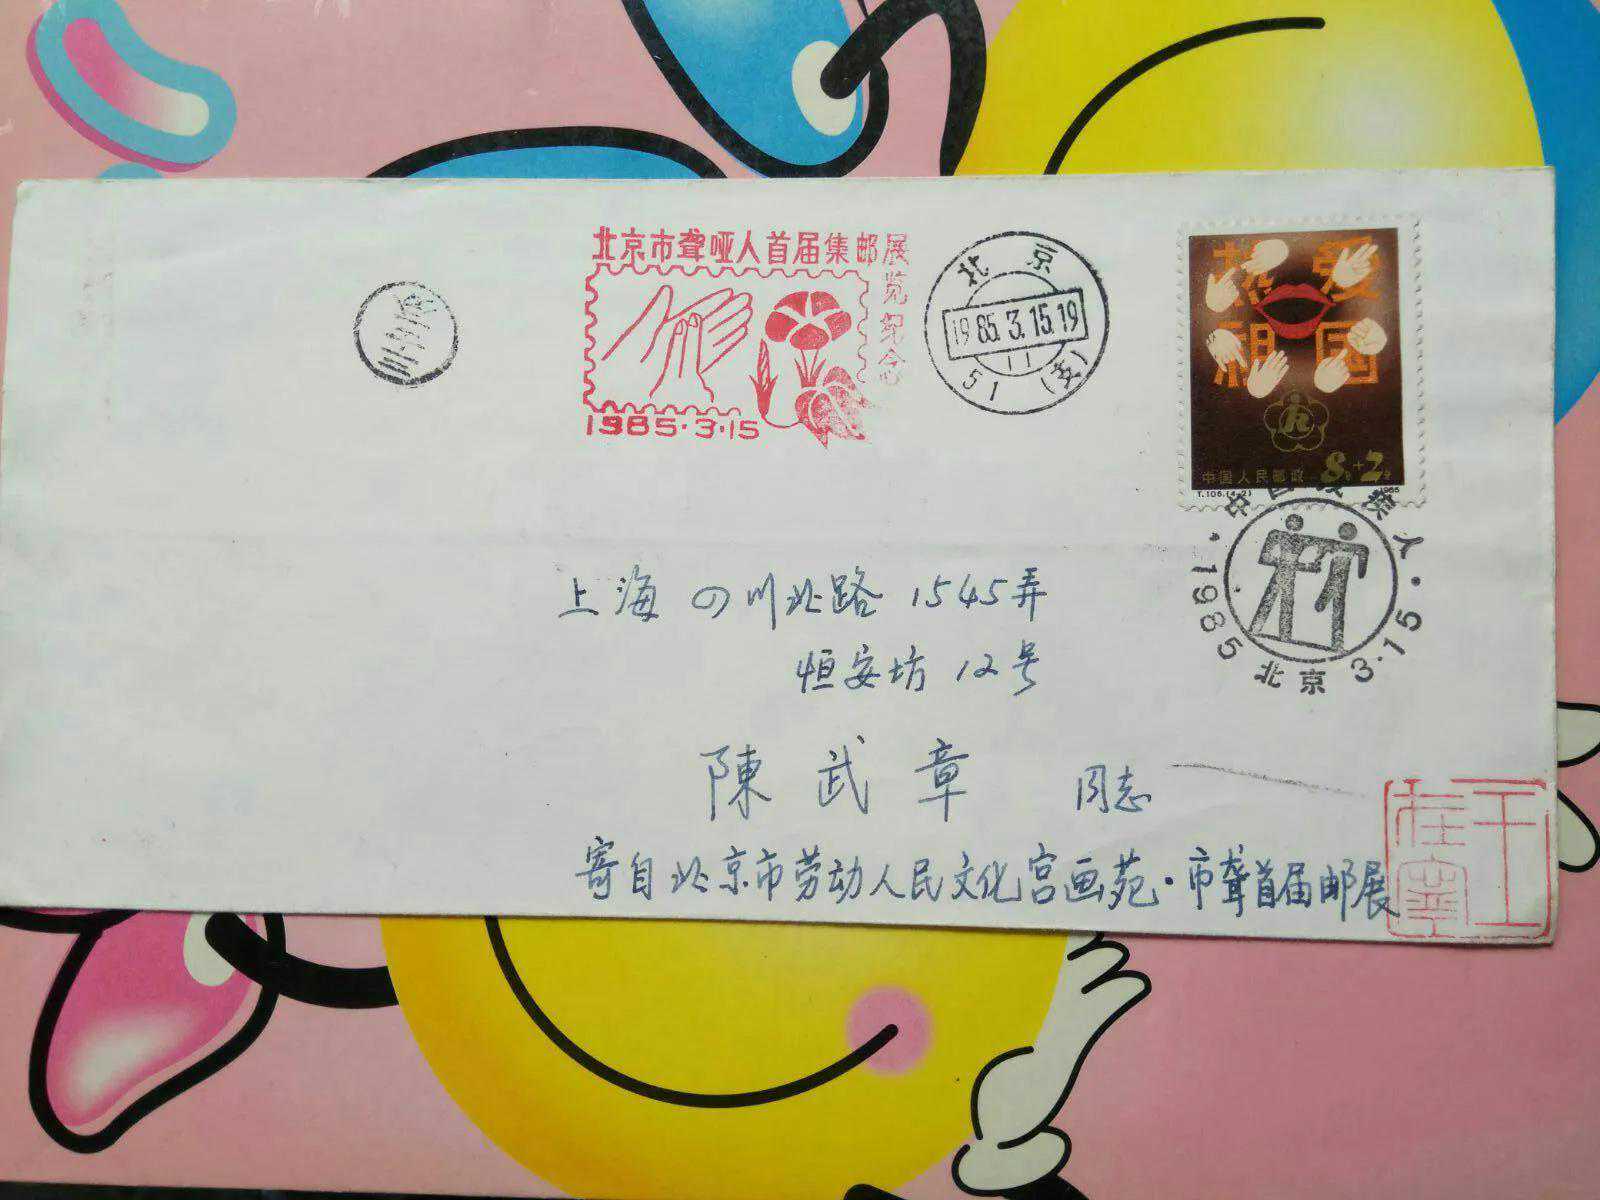 北京市聋哑人首届集邮展
览纪念
1985·3·15
北京
1985.3.15.19
11
51（支）
热爱
祖国
中国人民邮政 8分+2分
T.106.(4-2) 1985
中国残疾人
·1985 北京 3·15·
上海 四川北路 1545弄
恒安坊 12号
陳武章 同志
寄自北京市劳动人民文化宫画苑·市聋首届邮展
王